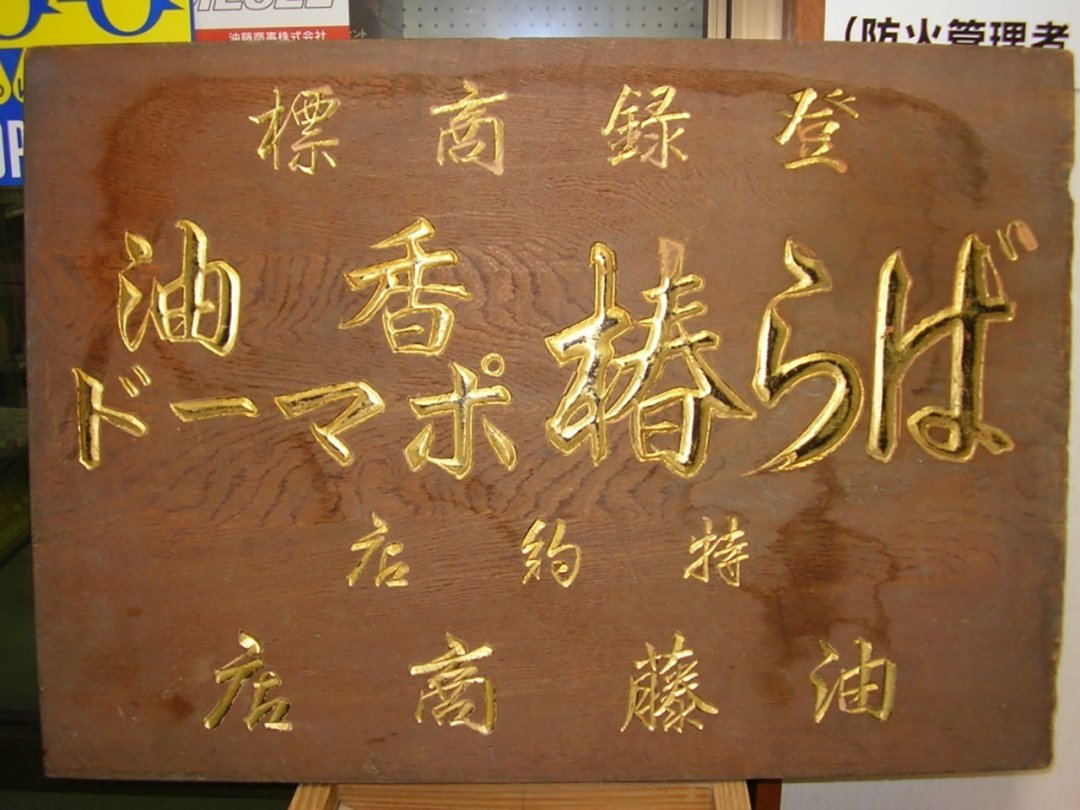 油藤商事株式会社
(防火管理者
登録商標
ばら椿
香油
ポマード
特約店
油藤商店